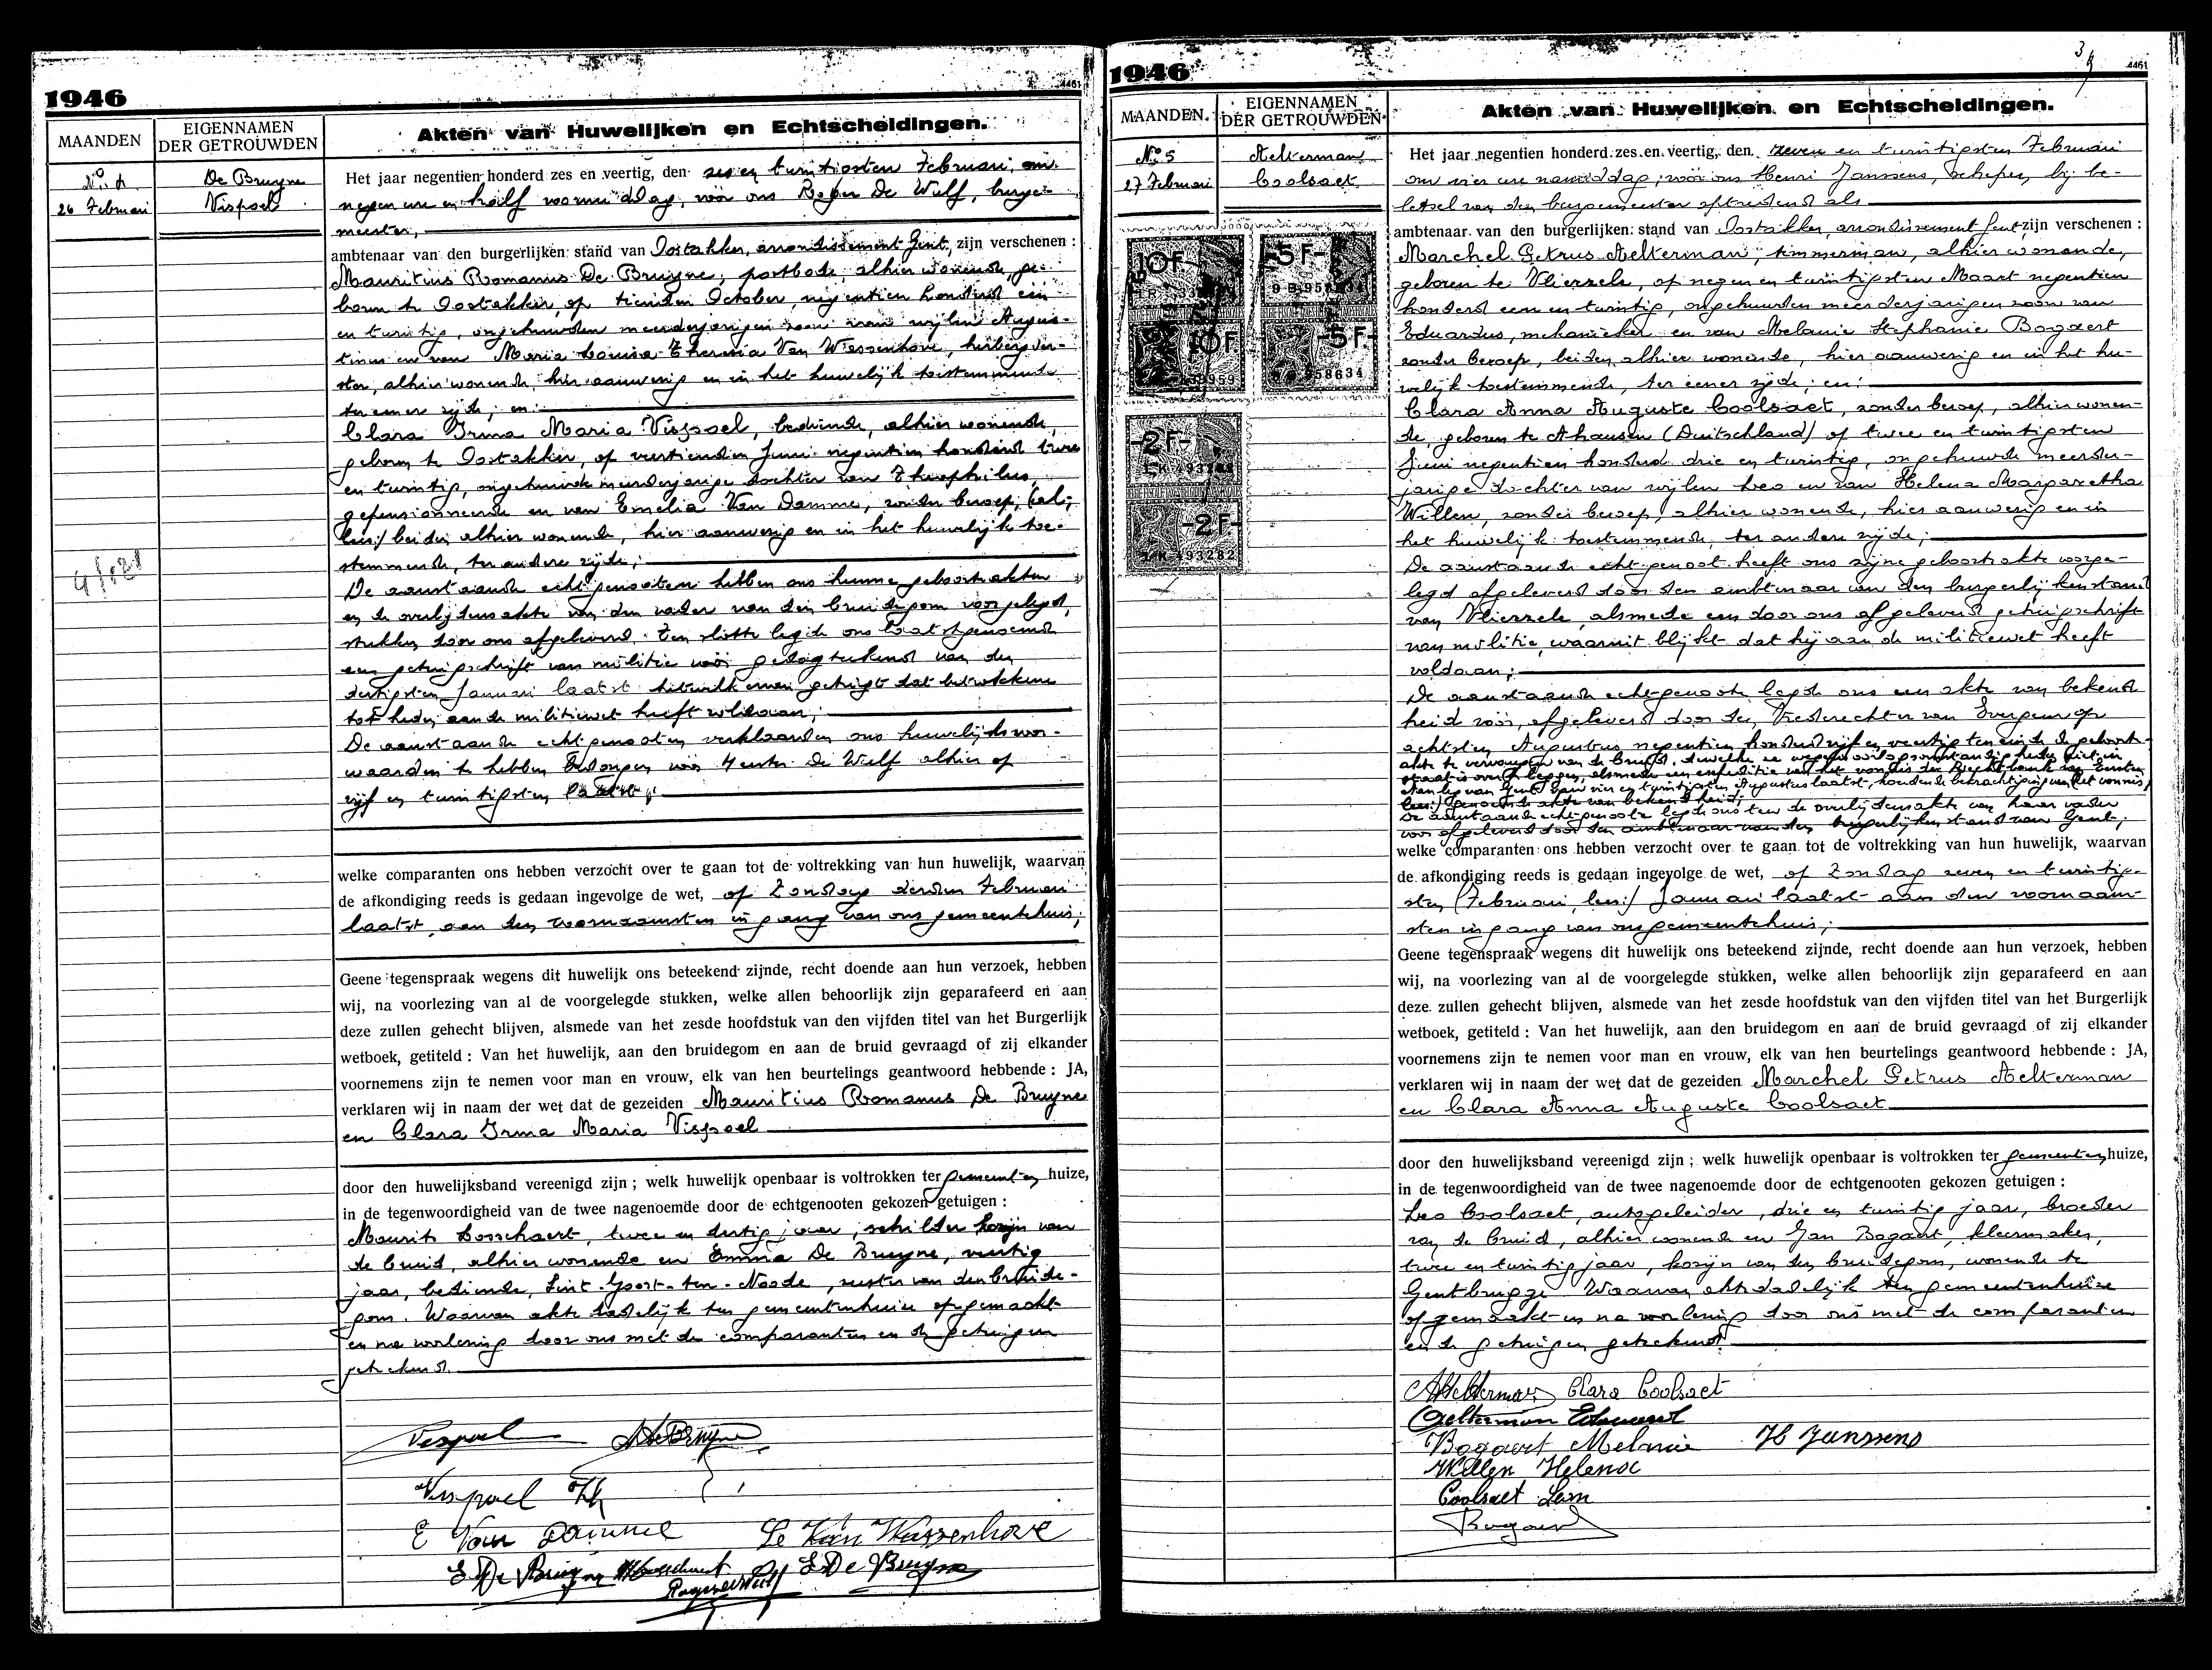 1946
4461
MAANDEN
EIGENNAMEN
DER GETROUWDEN
Akten van Huwelijken en Echtscheidingen.
No. 4
26 Februari
De Bruyne
Vispoel
Het jaar negentien honderd zes en veertig, den zes en twintigsten Februari, om
negen ure en half voormiddag, vóór ons Roger De Wulf, burge-
meester,
ambtenaar van den burgerlijken stand van Oostakker, arrondissement Gent, zijn verschenen :
Mauritius Romanus De Bruyne, postbode, alhier wonende, ge-
boren te Oostakker, op tienden October, negentien honderd een
en twintig, ongehuwden meerderjarigen zoon van wijlen Augus-
tinus en van Maria Louisa Theresia Van Wassenhove, herbergier-
ster, alhier wonende, hier aanwezig en in het huwelijk toestemmende
ter eener zijde, en:
Clara Irma Maria Vispoel, bediende, alhier wonende,
geboren te Oostakker, op veertienden Juni negentien honderd twee
en twintig, ongehuwde meerderjarige dochter van Theophilus,
gepensionneerde en van Emelia Van Damme, zonder beroep,
beiden alhier wonende, hier aanwezig en in het huwelijk toe-
stemmende, ter andere zijde;
De aanstaande echtgenooten hebben ons hunne geboorteakten
en de overlijdensakte van den vader van den bruidegom voorgelegd,
stukken door ons afgeleverd. Ten slotte legde ons laatstgenoemde
een getuigschrift van militie vóór gedagteekend van den
dertigsten Januari laatst hetwelk ervan getuigt dat betrokkene
tot heden aan de militiewet heeft voldaan;
De aanstaande echtgenooten verklaarden ons huwelijksvoor-
waarden te hebben bedongen voor Meester De Wulf alhier op
vijf en twintigsten laatst;
welke comparanten ons hebben verzocht over te gaan tot de voltrekking van hun huwelijk, waarvan
de afkondiging reeds is gedaan ingevolge de wet, op Zondag derden Februari
laatst, aan den voornaamsten ingang van ons gemeentehuis;
Geene tegenspraak wegens dit huwelijk ons beteekend zijnde, recht doende aan hun verzoek, hebben
wij, na voorlezing van al de voorgelegde stukken, welke allen behoorlijk zijn geparafeerd en aan
deze zullen gehecht blijven, alsmede van het zesde hoofdstuk van den vijfden titel van het Burgerlijk
wetboek, getiteld : Van het huwelijk, aan den bruidegom en aan de bruid gevraagd of zij elkander
voornemens zijn te nemen voor man en vrouw, elk van hen beurtelings geantwoord hebbende : JA,
verklaren wij in naam der wet dat de gezeiden Mauritius Romanus De Bruyne
en Clara Irma Maria Vispoel
door den huwelijksband vereenigd zijn ; welk huwelijk openbaar is voltrokken ter gemeenten huize,
in de tegenwoordigheid van de twee nagenoemde door de echtgenooten gekozen getuigen :
Maurits Bosschaert, twee en dertig jaar, schilder kozijn van
de bruid, alhier wonende en Emma De Bruyne, veertig
jaar, bediende, Sint-Joost-ten-Noode, zuster van den bruide-
gom. Waarvan akte dadelijk ten gemeentenhuize opgemaakt
en na voorlezing door ons met de comparanten en de getuigen
geteekend.
Vispoel De Bruyne
Vispoel Th
E Van Damme Le Van Wassenhove
E De Bruyne
E De Bruyne
1946
4461
MAANDEN.
EIGENNAMEN
DER GETROUWDEN
Akten van Huwelijken en Echtscheidingen.
No 5
27 Februari
Aelterman
Coolsaet
10F
5F
10F
5F
958634
2F
2F
493282
Het jaar negentien honderd zes en veertig, den zeven en twintigsten Februari
om vier ure namiddag, vóór ons Henri Janssens, schepen, bij be-
letsel van den burgemeester optredend als
ambtenaar van den burgerlijken stand van Oostakker, arrondissement Gent zijn verschenen :
Marchel Petrus Aelterman, timmerman, alhier wonende,
geboren te Vlierzele, op negen en twintigsten Maart negentien
honderd een en twintig, ongehuwden meerderjarigen zoon van
Eduardus, mekanieker en van Melanie Stephanie Bogaert
zonder beroep, beiden alhier wonende, hier aanwezig en in het hu-
welijk toestemmende, ter eener zijde; en:
Clara Anna Auguste Coolsaet, zonder beroep, alhier wonen-
de, geboren te Ahausen (Duitschland) op twee en twintigsten
Juni negentien honderd drie en twintig, ongehuwde meerder-
jarige dochter van wijlen Leo en van Helena Margaretha
Willen, zonder beroep, alhier wonende, hier aanwezig en in
het huwelijk toestemmende, ter andere zijde;
De aanstaande echtgenoot heeft ons zijne geboorteakte voorge-
legd afgeleverd door den ambtenaar van den burgerlijken stand
van Vlierzele, alsmede een door ons afgeleverd getuigschrift
van militie, waaruit blijkt dat hij aan de militiewet heeft
voldaan;
De aanstaande echtgenoote legde ons een akte van bekend-
heid vóór, afgeleverd door den Vrederechter van Evergem op
achtsten Augustus negentien honderd vijf en veertig ten einde de geboorte-
akte te vervangen van de bruid, dewelke ze wegens oorlogsomstandigheden niet in
staat is over te leggen, alsmede een expeditie van het vonnis der Rechtbank van Eersten
Aanleg van Gent van vier en twintigsten Augustus laatst, houdende bekrachtiging van (het vonnis,
lees:) genoemde akte van bekendheid;
De aanstaande echtgenoote legde ons ten de overlijdensakte van haar vader
voor afgeleverd door den ambtenaar van den burgerlijken stand van Gent;
welke comparanten ons hebben verzocht over te gaan tot de voltrekking van hun huwelijk, waarvan
de afkondiging reeds is gedaan ingevolge de wet, op Zondag zeven en twintig-
sten (Februari, lees:) Januari laatst aan den voornaam-
sten ingang van ons gemeentehuis;
Geene tegenspraak wegens dit huwelijk ons beteekend zijnde, recht doende aan hun verzoek, hebben
wij, na voorlezing van al de voorgelegde stukken, welke allen behoorlijk zijn geparafeerd en aan
deze zullen gehecht blijven, alsmede van het zesde hoofdstuk van den vijfden titel van het Burgerlijk
wetboek, getiteld : Van het huwelijk, aan den bruidegom en aan de bruid gevraagd of zij elkander
voornemens zijn te nemen voor man en vrouw, elk van hen beurtelings geantwoord hebbende : JA,
verklaren wij in naam der wet dat de gezeiden Marchel Petrus Aelterman
en Clara Anna Auguste Coolsaet
door den huwelijksband vereenigd zijn ; welk huwelijk openbaar is voltrokken ter gemeenten huize,
in de tegenwoordigheid van de twee nagenoemde door de echtgenooten gekozen getuigen :
Leo Coolsaet, autogeleider, drie en twintig jaar, broeder
van de bruid, alhier wonende en Jan Bogaert, kleermaker,
twee en twintig jaar, kozijn van den bruidegom, wonende te
Gentbrugge. Waarvan akte dadelijk ten gemeentenhuize
opgemaakt en na voorlezing door ons met de comparanten
en de getuigen geteekend.
Aelterman Clara Coolsaet
Aelterman Eduard
Bogaert Melanie H Janssens
Willen Helena
Coolsaet Leon
Bogaert